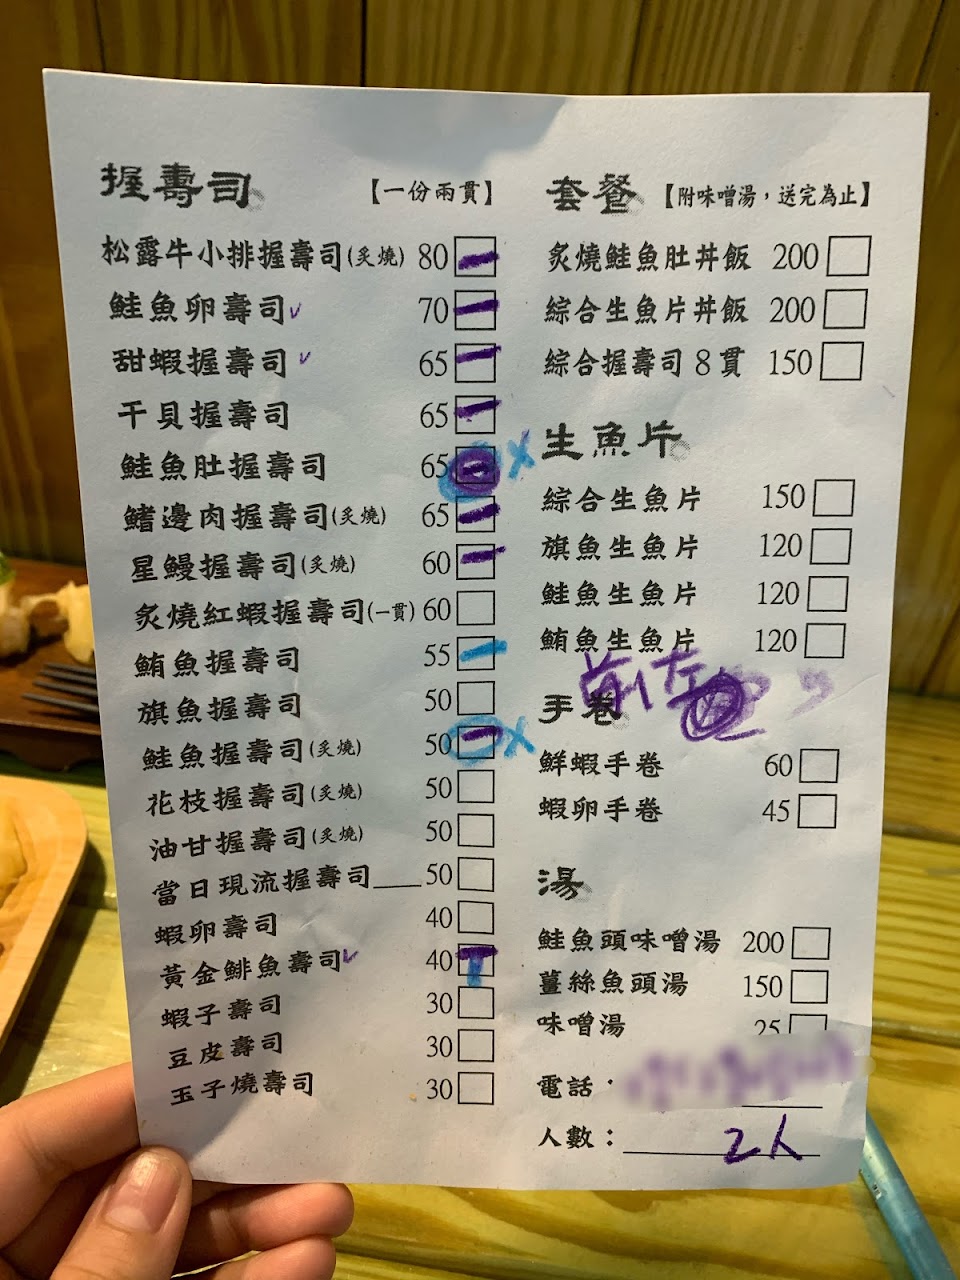 握壽司 【一份兩貫】
松露牛小排握壽司(炙燒) 80
鮭魚卵壽司 70
甜蝦握壽司 65
干貝握壽司 65
鮭魚肚握壽司 65
鰭邊肉握壽司(炙燒) 65
星鰻握壽司(炙燒) 60
炙燒紅蝦握壽司(一貫) 60
鮪魚握壽司 55
旗魚握壽司 50
鮭魚握壽司(炙燒) 50
花枝握壽司(炙燒) 50
油甘握壽司(炙燒) 50
當日現流握壽司____50
蝦卵壽司 40
黃金鯡魚壽司 40
蝦子壽司 30
豆皮壽司 30
玉子燒壽司 30
套餐 【附味噌湯，送完為止】
炙燒鮭魚肚丼飯 200
綜合生魚片丼飯 200
綜合握壽司8貫 150
生魚片
綜合生魚片 150
旗魚生魚片 120
鮭魚生魚片 120
鮪魚生魚片 120
前左
手卷
鮮蝦手卷 60
蝦卵手卷 45
湯
鮭魚頭味噌湯 200
薑絲魚頭湯 150
味噌湯 25
電話：
人數：2人